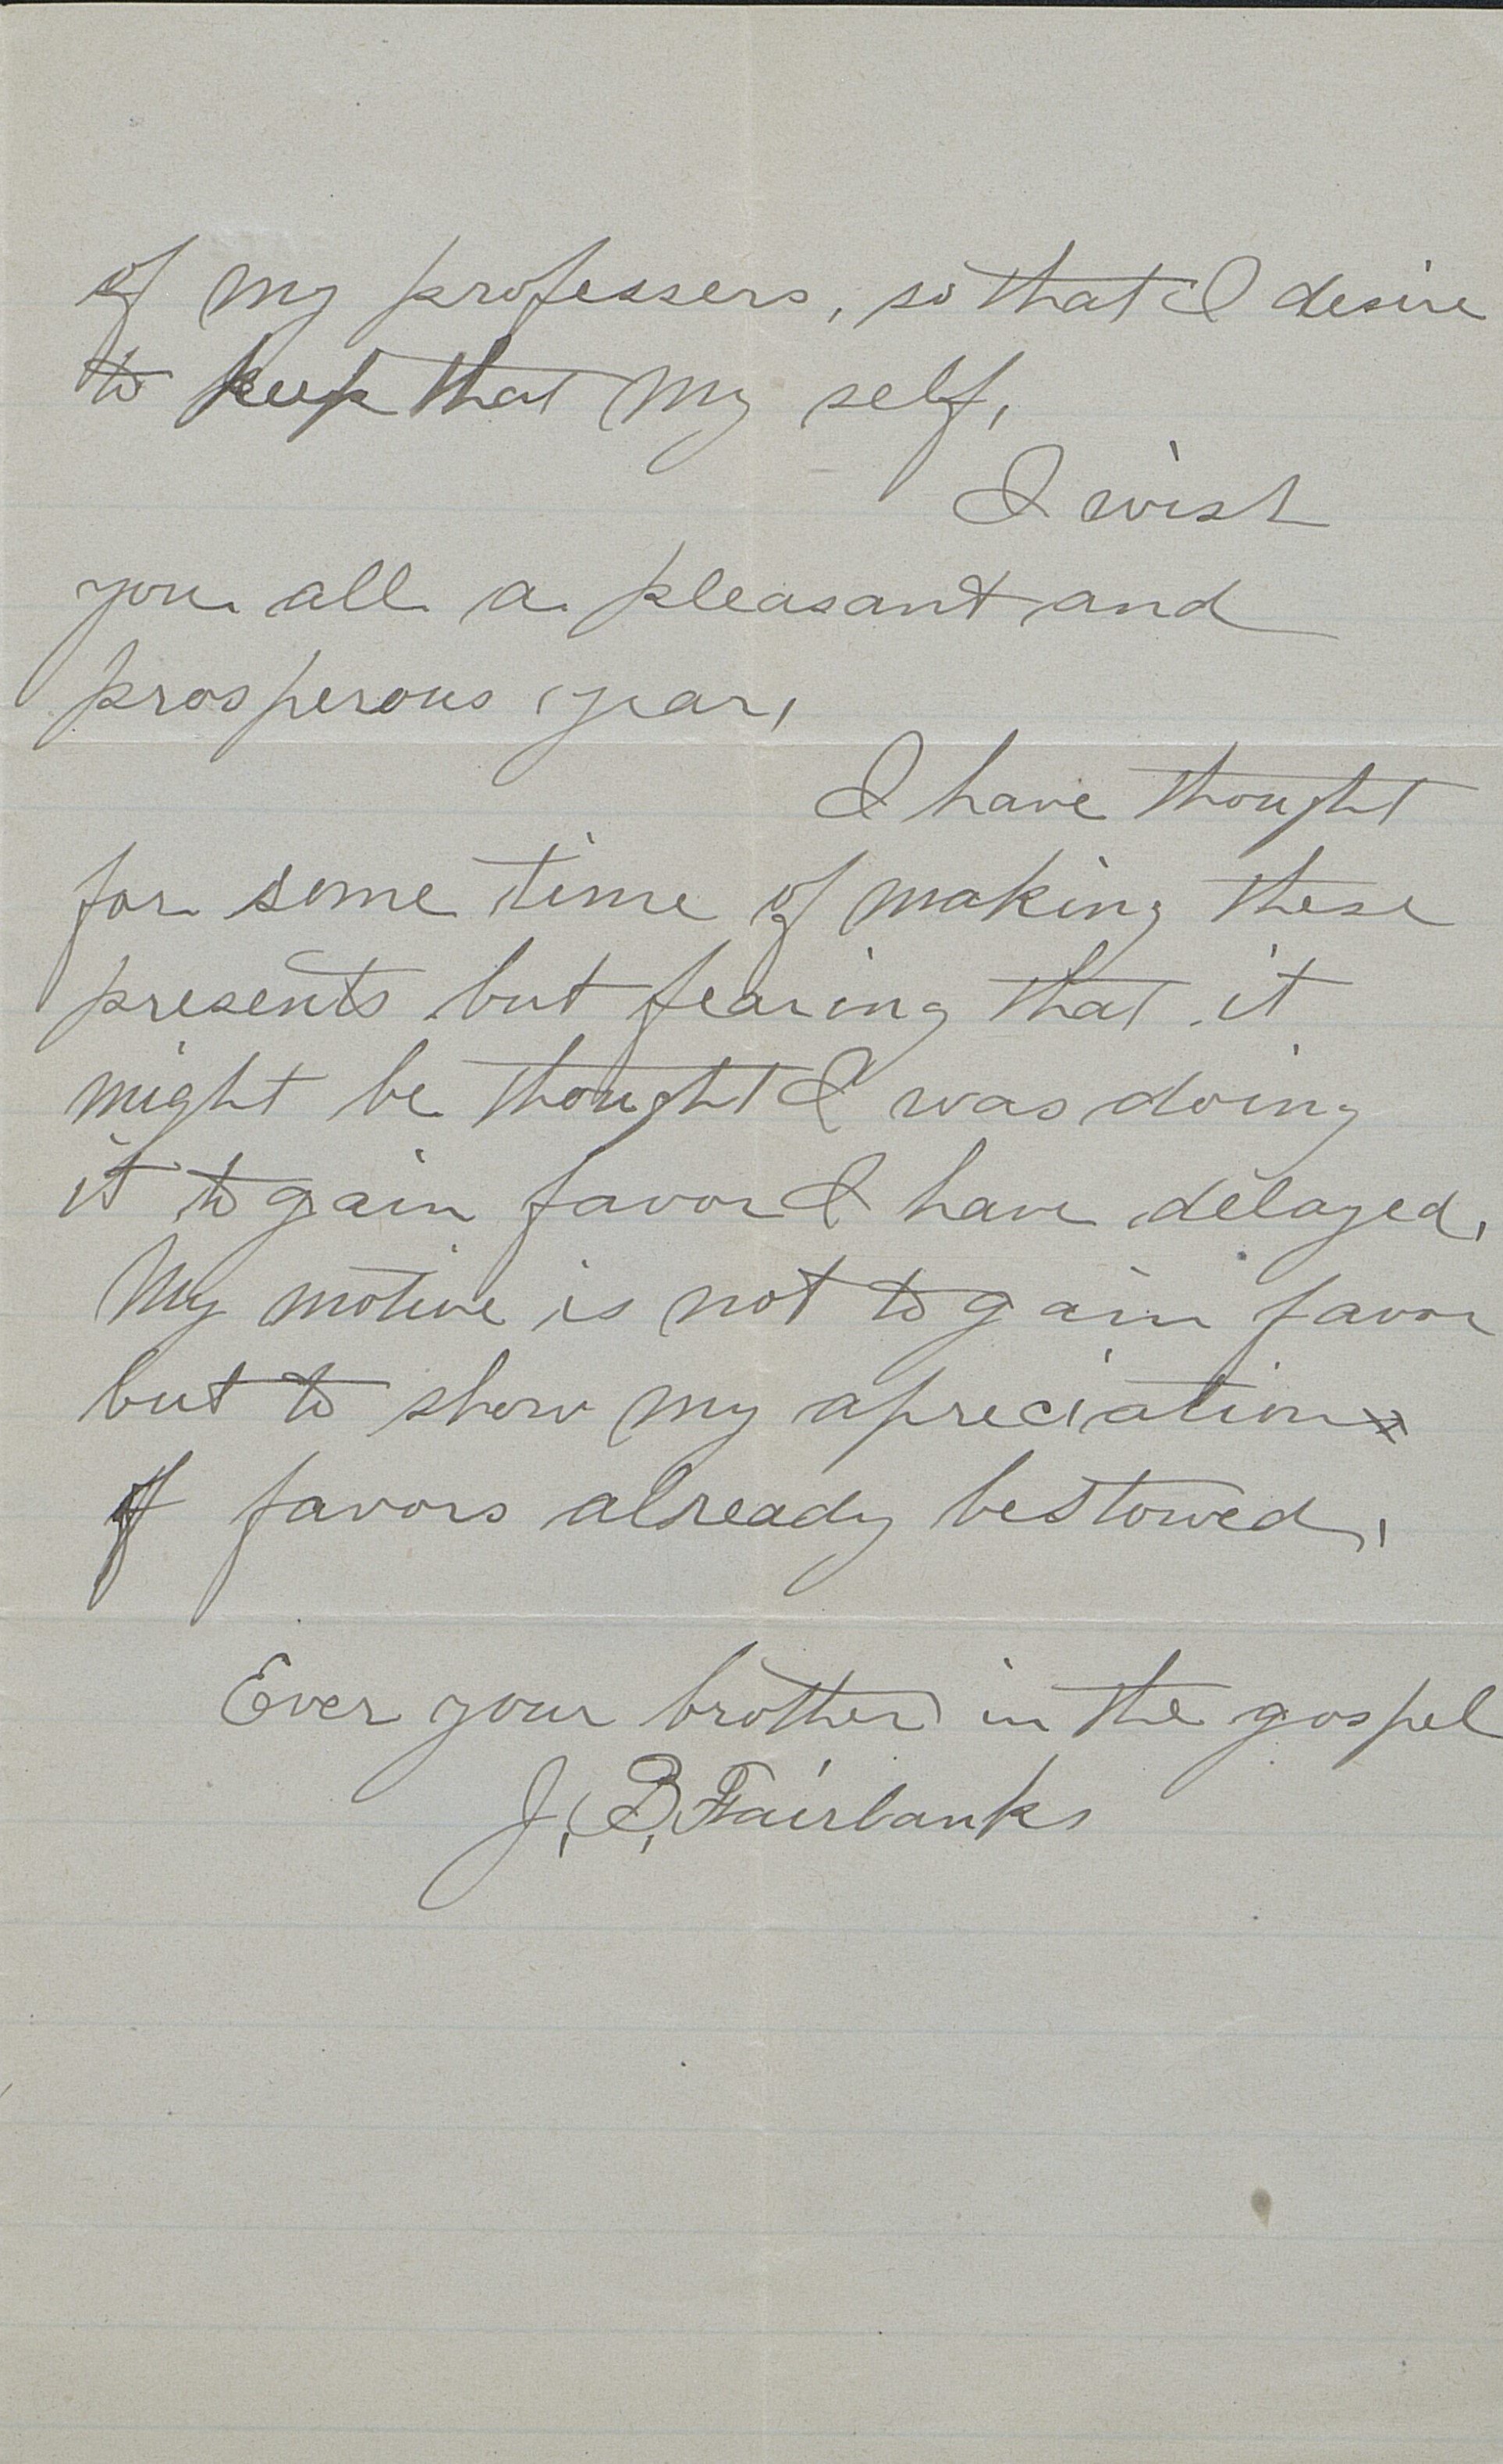 of my professers, so that I desire
to keep that my self,
I wish
you all a pleasant and
prosperous year,
I have thought
for some time of making these
presents but fearing that it
might be thought I was doing
it to gain favor I have delayed,
My motive is not to gain favor
but to show my apreciation
of favors already bestowed,
Ever your brother in the gospel
J, B, Fairbanks